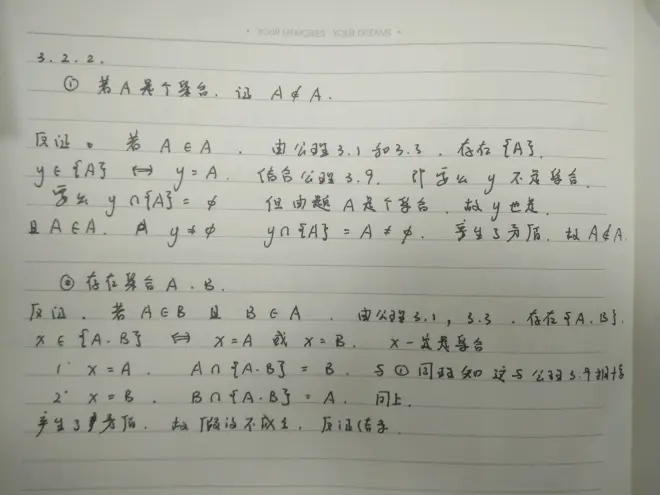 3.2.2.
① 若A是个集合. 证 A∉A.
反证。若 A∈A. 由公理3.1和3.3. 存在{A}.
y∈{A} ⟺ y=A. 结合公理3.9. 即要么 y 不是集合.
要么 y∩{A}=φ 但由题A是个集合. 故y也是.
且A∈A. y≠φ y∩{A}=A≠φ. 产生了矛盾. 故A∉A.
② 存在集合A.B.
反证. 若A∈B 且 B∈A. 由公理3.1, 3.3. 存在{A.B}.
x∈{A.B} ⟺ x=A 或 x=B. x一定是集合
1° x=A. A∩{A.B}=B. 与①同理知 这与公理3.9相悖
2° x=B. B∩{A.B}=A. 同上.
产生了矛盾. 故假设不成立. 反证结束.